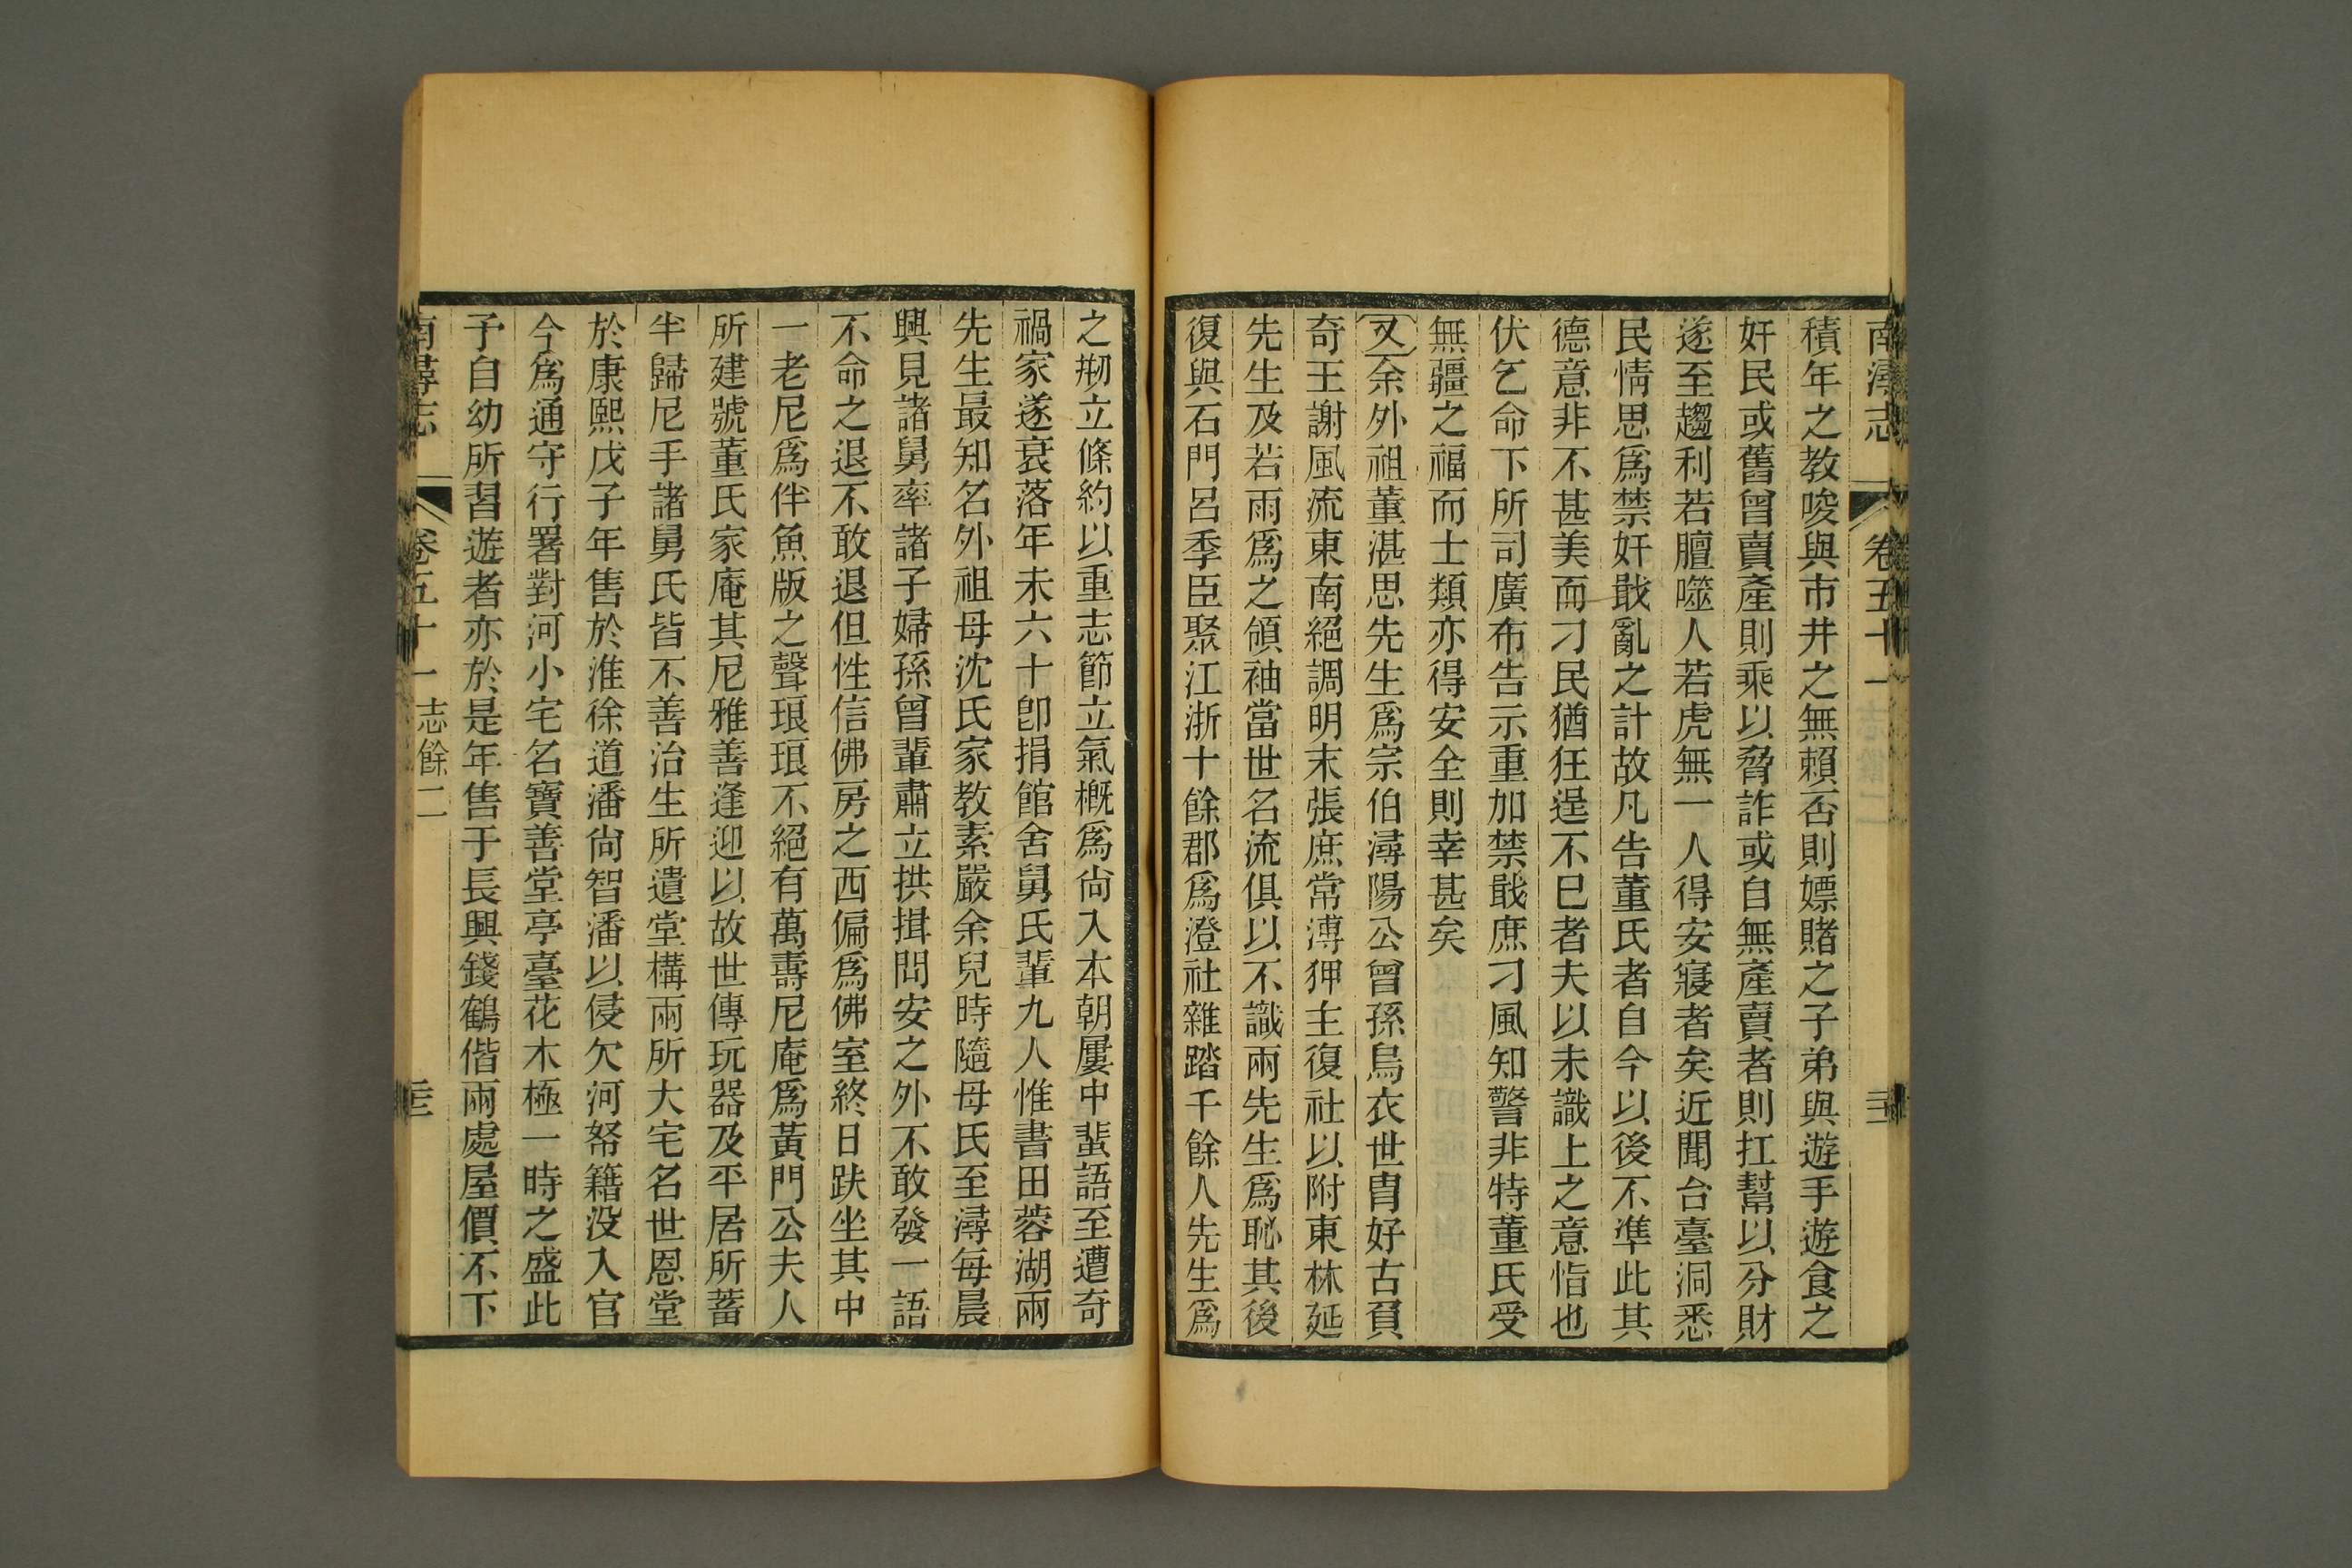 南潯志 卷五十一
積年之教唆與市井之無賴否則嫖賭之子弟與遊手遊食之
奸民或舊曾賣產則乘以脅詐或自無產賣者則扛幫以分財
遂至趨利若膻噬人若虎無一人得安寢者矣近聞台臺洞悉
民情思爲禁奸戢亂之計故凡告董氏者自今以後不準此其
德意非不甚美而刁民猶狂逞不已者夫以未識上之意恉也
伏乞命下所司廣布告示重加禁戢庶刁風知警非特董氏受
無疆之福而士類亦得安全則幸甚矣
又余外祖董湛思先生爲宗伯潯陽公曾孫烏衣世胄好古負
奇王謝風流東南絕調明末張庶常溥狎主復社以附東林延
先生及若雨爲之領袖當世名流俱以不識兩先生爲恥其後
復與石門呂季臣聚江浙十餘郡爲澄社雜踏千餘人先生爲
之刱立條約以重志節立氣概爲尙入本朝屢中蜚語至遭奇
禍家遂衰落年未六十卽捐館舍舅氏輩九人惟書田蓉湖兩
先生最知名外祖母沈氏家教素嚴余兒時隨母氏至潯每晨
興見諸舅率諸子婦孫曾輩肅立拱揖問安之外不敢發一語
不命之退不敢退但性信佛房之西偏爲佛室終日趺坐其中
一老尼爲伴魚版之聲琅琅不絕有萬壽尼庵爲黃門公夫人
所建號董氏家庵其尼雅善逢迎以故世傳玩器及平居所蓄
半歸尼手諸舅氏皆不善治生所遺堂構兩所大宅名世恩堂
於康熙戊子年售於淮徐道潘尙智潘以侵欠河帑籍没入官
今爲通守行署對河小宅名寶善堂亭臺花木極一時之盛此
予自幼所習遊者亦於是年售于長興錢鶴偕兩處屋價不下
南潯志 卷五十一 志餘二